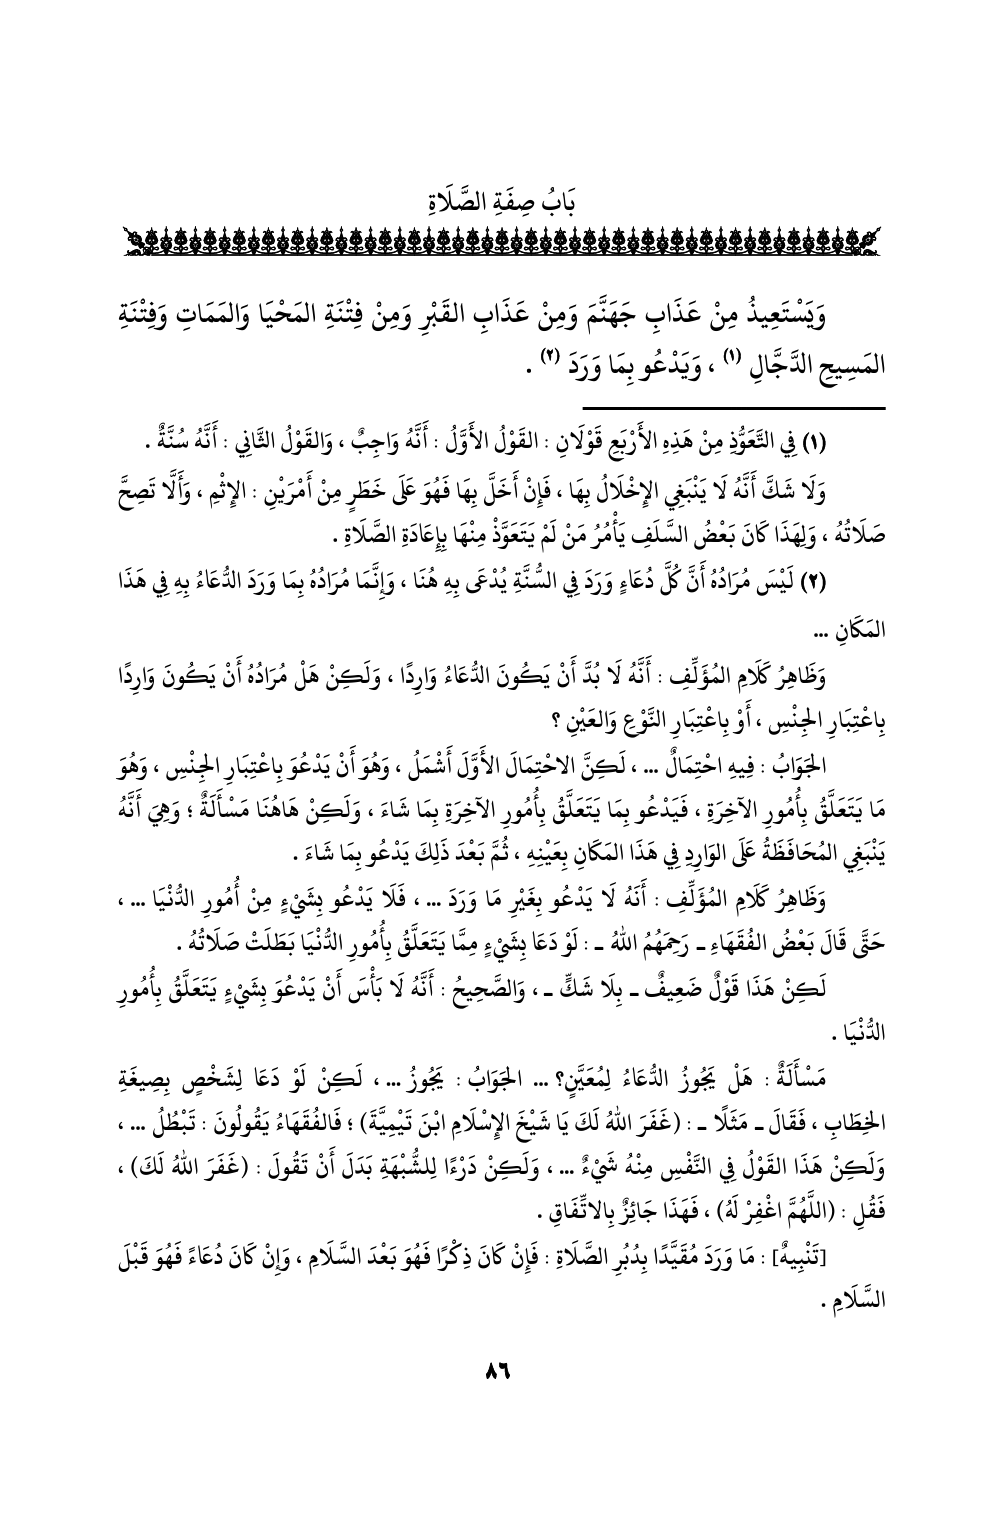 بَابُ صِفَةِ الصَّلَاةِ
وَيَسْتَعِيذُ مِنْ عَذَابِ جَهَنَّمَ وَمِنْ عَذَابِ القَبْرِ وَمِنْ فِتْنَةِ المَحْيَا وَالمَمَاتِ وَفِتْنَةِ
المَسِيحِ الدَّجَّالِ (١) ، وَيَدْعُو بِمَا وَرَدَ (٢) .
(١) فِي التَّعَوُّذِ مِنْ هَذِهِ الأَرْبَعِ قَوْلَانِ : القَوْلُ الأَوَّلُ : أَنَّهُ وَاجِبٌ ، وَالقَوْلُ الثَّانِي : أَنَّهُ سُنَّةٌ .
وَلَا شَكَّ أَنَّهُ لَا يَنْبَغِي الإِخْلَالُ بِهَا ، فَإِنْ أَخَلَّ بِهَا فَهُوَ عَلَى خَطَرٍ مِنْ أَمْرَيْنِ : الإِثْمِ ، وَأَلَّا تَصِحَّ
صَلَاتُهُ ، وَلِهَذَا كَانَ بَعْضُ السَّلَفِ يَأْمُرُ مَنْ لَمْ يَتَعَوَّذْ مِنْهَا بِإِعَادَةِ الصَّلَاةِ .
(٢) لَيْسَ مُرَادُهُ أَنَّ كُلَّ دُعَاءٍ وَرَدَ فِي السُّنَّةِ يُدْعَى بِهِ هُنَا ، وَإِنَّمَا مُرَادُهُ بِمَا وَرَدَ الدُّعَاءُ بِهِ فِي هَذَا
المَكَانِ ...
وَظَاهِرُ كَلَامِ المُؤَلِّفِ : أَنَّهُ لَا بُدَّ أَنْ يَكُونَ الدُّعَاءُ وَارِدًا ، وَلَكِنْ هَلْ مُرَادُهُ أَنْ يَكُونَ وَارِدًا
بِاعْتِبَارِ الجِنْسِ ، أَوْ بِاعْتِبَارِ النَّوْعِ وَالعَيْنِ ؟
الجَوَابُ : فِيهِ احْتِمَالٌ ... ، لَكِنَّ الاحْتِمَالَ الأَوَّلَ أَشْمَلُ ، وَهُوَ أَنْ يَدْعُوَ بِاعْتِبَارِ الجِنْسِ ، وَهُوَ
مَا يَتَعَلَّقُ بِأُمُورِ الآخِرَةِ ، فَيَدْعُو بِمَا يَتَعَلَّقُ بِأُمُورِ الآخِرَةِ بِمَا شَاءَ ، وَلَكِنْ هَاهُنَا مَسْأَلَةٌ ؛ وَهِيَ أَنَّهُ
يَنْبَغِي المُحَافَظَةُ عَلَى الوَارِدِ فِي هَذَا المَكَانِ بِعَيْنِهِ ، ثُمَّ بَعْدَ ذَلِكَ يَدْعُو بِمَا شَاءَ .
وَظَاهِرُ كَلَامِ المُؤَلِّفِ : أَنَهُ لَا يَدْعُو بِغَيْرِ مَا وَرَدَ ... ، فَلَا يَدْعُو بِشَيْءٍ مِنْ أُمُورِ الدُّنْيَا ... ،
حَتَّى قَالَ بَعْضُ الفُقَهَاءِ ـ رَحِمَهُمُ اللهُ ـ : لَوْ دَعَا بِشَيْءٍ مِمَّا يَتَعَلَّقُ بِأُمُورِ الدُّنْيَا بَطَلَتْ صَلَاتُهُ .
لَكِنْ هَذَا قَوْلٌ ضَعِيفٌ ـ بِلَا شَكٍّ ـ ، وَالصَّحِيحُ : أَنَّهُ لَا بَأْسَ أَنْ يَدْعُوَ بِشَيْءٍ يَتَعَلَّقُ بِأُمُورِ
الدُّنْيَا .
مَسْأَلَةٌ : هَلْ يَجُوزُ الدُّعَاءُ لِمُعَيَّنٍ؟ ... الجَوَابُ : يَجُوزُ ... ، لَكِنْ لَوْ دَعَا لِشَخْصٍ بِصِيغَةِ
الخِطَابِ ، فَقَالَ ـ مَثَلًا ـ : (غَفَرَ اللهُ لَكَ يَا شَيْخَ الإِسْلَامِ ابْنَ تَيْمِيَّةَ) ؛ فَالفُقَهَاءُ يَقُولُونَ : تَبْطُلُ ... ،
وَلَكِنْ هَذَا القَوْلُ فِي النَّفْسِ مِنْهُ شَيْءٌ ... ، وَلَكِنْ دَرْءًا لِلشُّبْهَةِ بَدَلَ أَنْ تَقُولَ : (غَفَرَ اللهُ لَكَ) ،
فَقُلِ : (اللَّهُمَّ اغْفِرْ لَهُ) ، فَهَذَا جَائِزٌ بِالاتِّفَاقِ .
[تَنْبِيهٌ] : مَا وَرَدَ مُقَيَّدًا بِدُبُرِ الصَّلَاةِ : فَإِنْ كَانَ ذِكْرًا فَهُوَ بَعْدَ السَّلَامِ ، وَإِنْ كَانَ دُعَاءً فَهُوَ قَبْلَ
السَّلَامِ .
٨٦